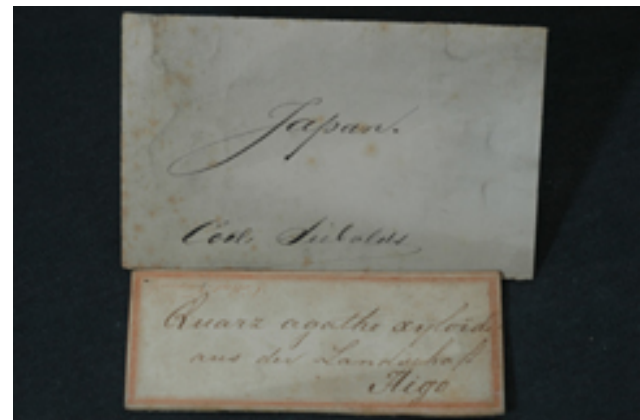 Japan.
Coll. Siebolds
Quarz agathe xyloide
aus der Landschaft
Higo